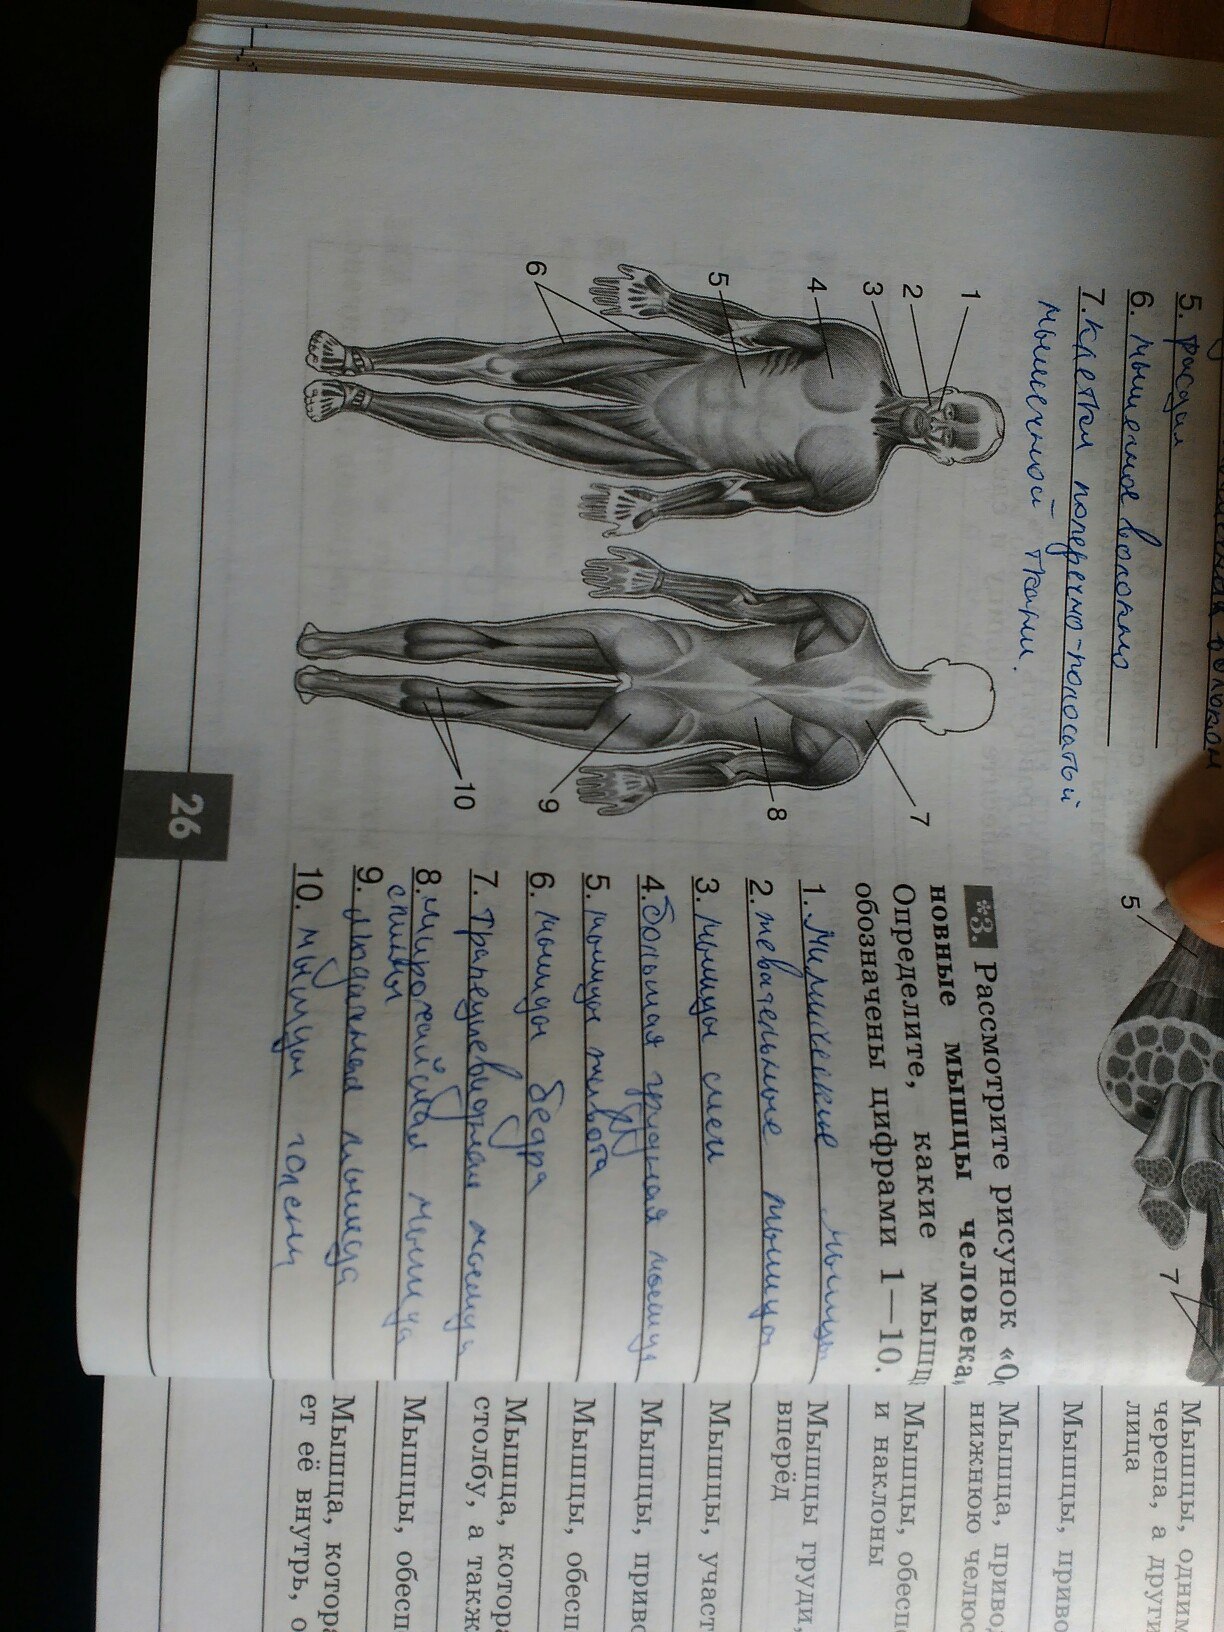 5. расдил
6. мышечное волокно
7. клетки поперечно-полосатой
мышечной ткани.
1
2
3
4
5
6
7
8
9
10
5
7
*3. Рассмотрите рисунок «О
новные мышцы человека
Определите, какие мышц
обозначены цифрами 1—10.
1. Мимические мышцы
2. жевательные мышцы
3. мышцы шеи
4. большая грудная мышца
5. мышцы живота
6. мышцы бедра
7. трапециевидная мышца
8. широчайшая мышца
спины
9. ягодичная мышца
10. мышцы голени
26
Мышцы, одним
черепа, а други
лица
Мышцы, приво
Мышца, привод
нижнюю челюс
Мышцы, обесп
и наклоны
Мышцы груди,
вперёд
Мышцы, участ
Мышцы, приво
Мышцы, обесп
Мышца, котора
столбу, а такж
Мышцы, обесп
Мышца, котора
ет её внутрь, о